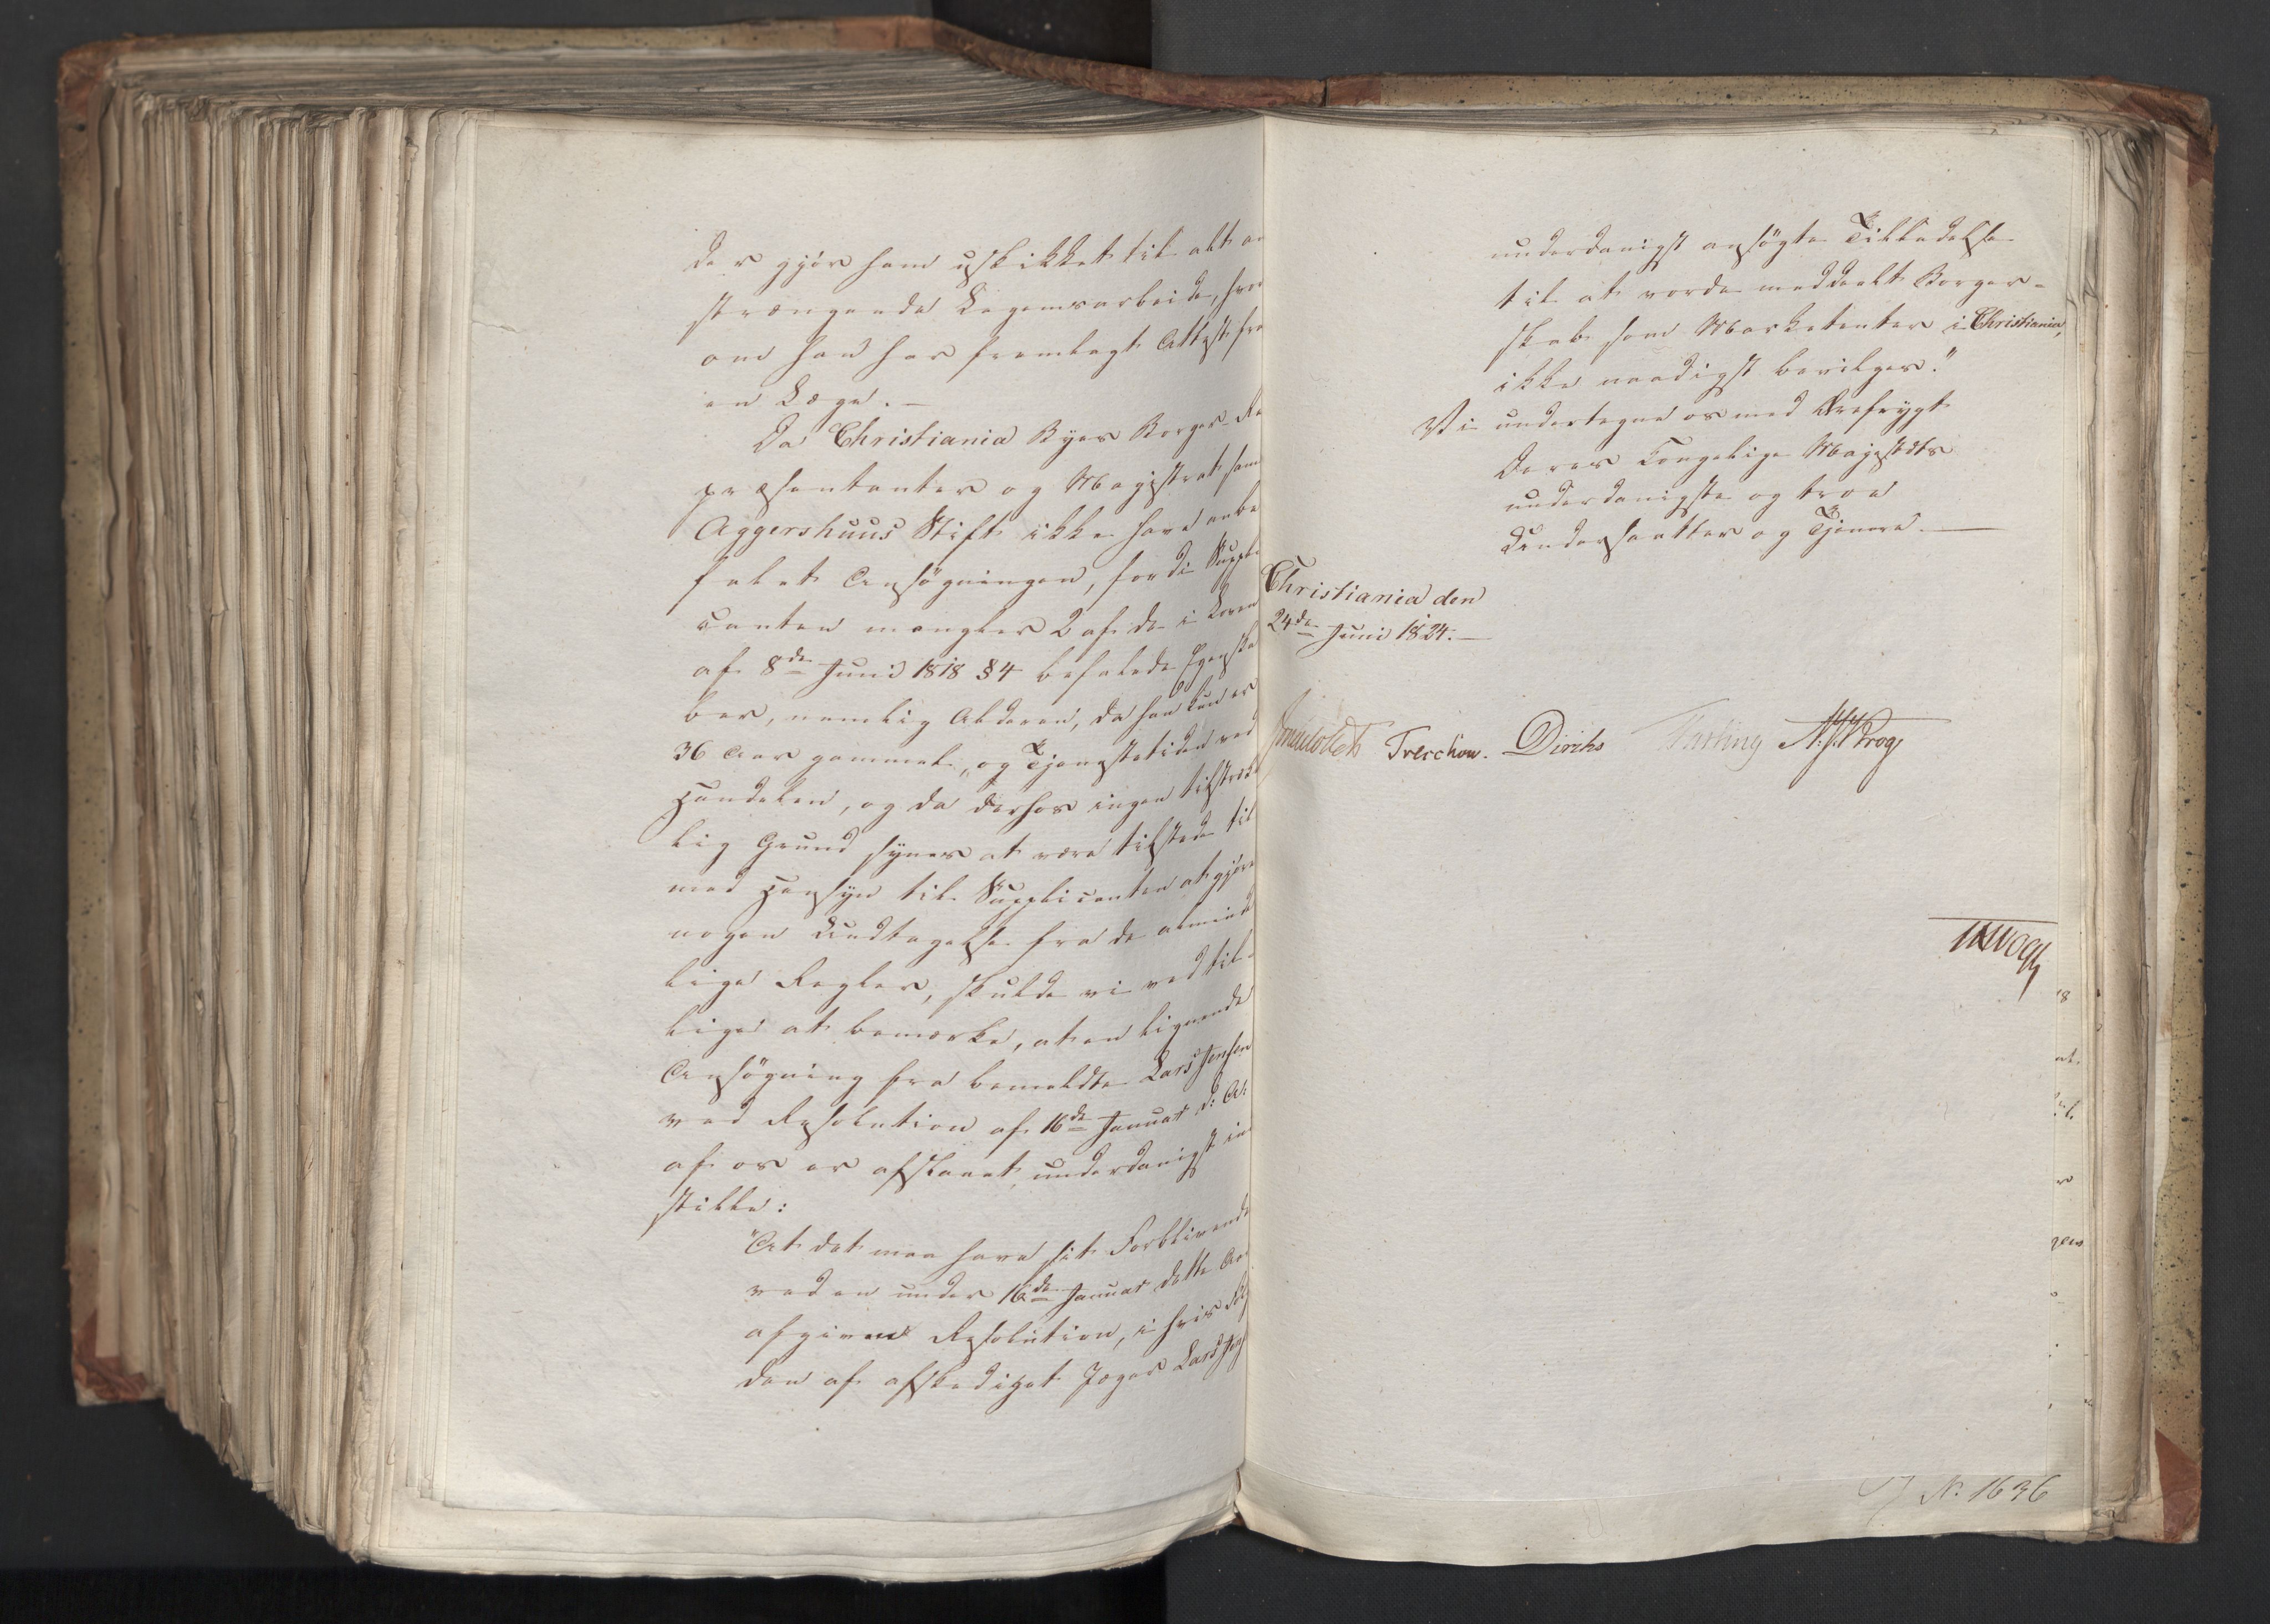 der gjør ham uskikket til alt an
strængende Legemsarbeide, hvor
om han har fremlagt Attest fra
en Læge. —
Da Christiania Byes Borger-Re
præsentanter og Magistrat samt
Aggershuus Stift ikke have anbe
falet Ansøgningen, fordi Suppli
canten mangler 2 af de i Loven
af 8de Juni 1818 §4 befalede Egenska
ber, nemlig Alderen, da han kun er
36 Aar gammel, og Tjenestetiden ved
Handelen, og da derhos ingen tilstræk
lig Grund synes at være tilstede til
med Hensyn til Supplicanten at gjøre
nogen Undtagelse fra de alminde
lige Regler, skulde vi ved til-
lige at bemærke, at en lignende
Ansøgning fra bemeldte Lars Jensen
ved Resolution af 16de Januar d: A:
af os er afslaaet, underdanigst ind
stille:
"At det maa have sit Forblivende
ved en under 16de Januar dette Aar
afgiven Resolution, i hvis Følge
den af afskediget Jæger Lars Jens
underdanigst ansøgte Tilladelse
til at vorde meddeelt Borger-
skab som Marketenter i Christiania,
ikke naadigst bevilges."
Vi undertegne os med Ærefrygt
Deres Kongelige Majestæts
underdanigste og troe
Undersaatter og Tjenere. —
Christiania den
24de Juni 1824. —
Treschow. Diriks Fasting N: J: Krog
No. 1636